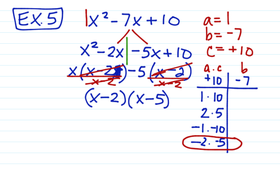 EX 5
1x² - 7x + 10
x² - 2x - 5x + 10
x(x - 2) - 5(x - 2)
x - 2 x - 2
(x - 2)(x - 5)
a = 1
b = -7
c = +10
a · c b
+10 -7
1 · 10
2 · 5
-1 · -10
-2 · -5